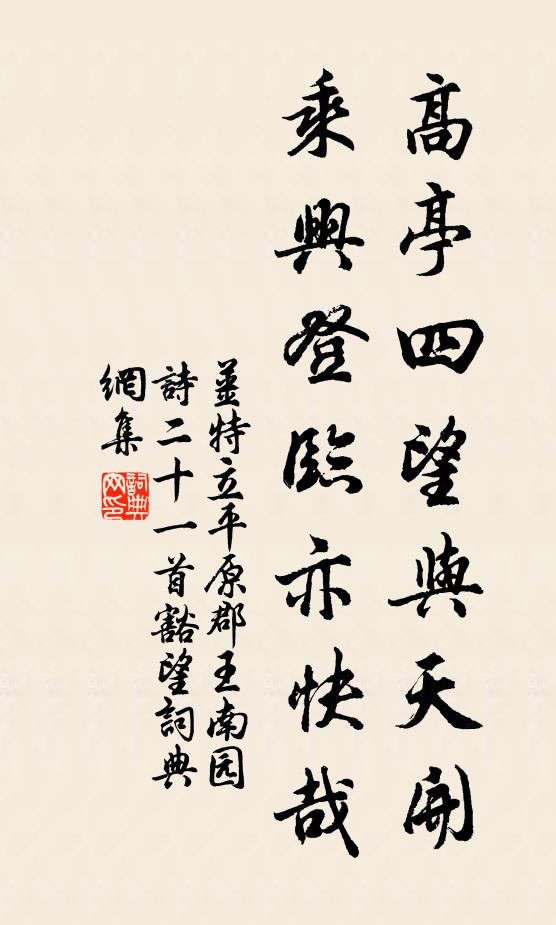 高亭四望與天開
乘興登臨亦快哉
姜特立平原郡王南园
詩二十一首豁望詞典
網集
詞典
网印